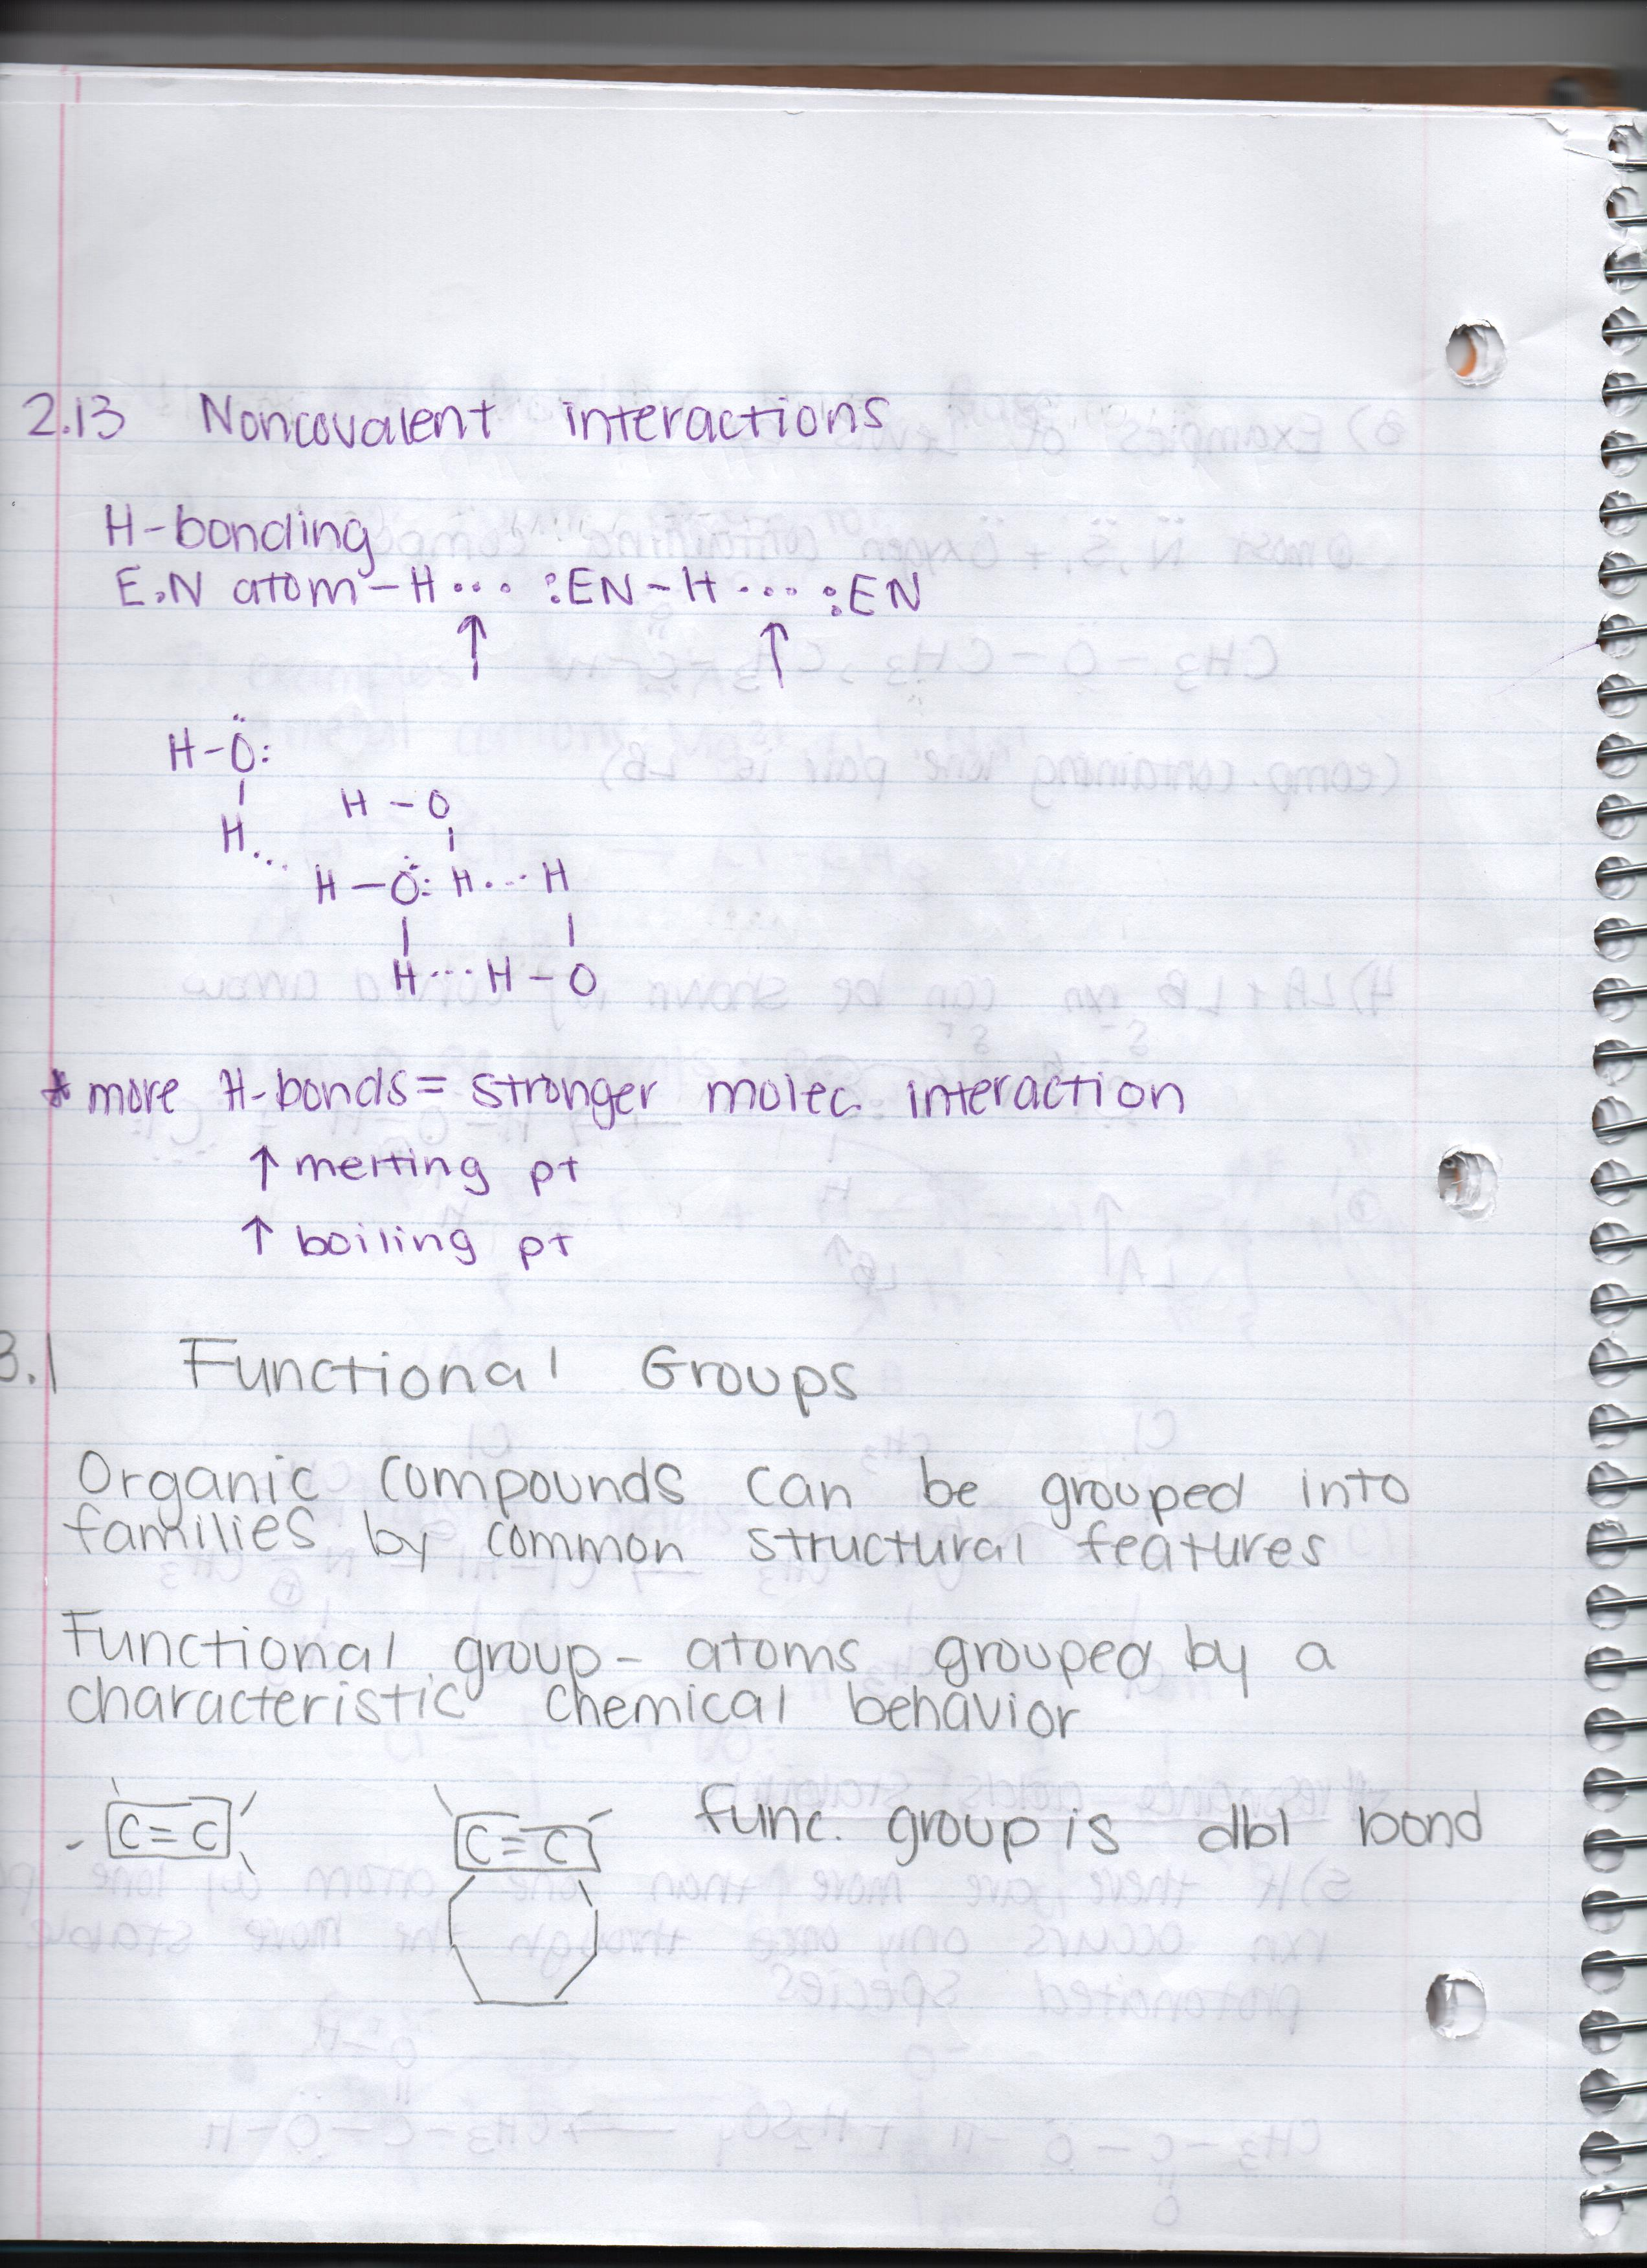 2.13 Noncovalent interactions
H-bonding
E.N atom-H... :EN-H.... :EN
↑ ↑
H-Ö:
|
H...
H-O
|
H-Ö: H...H
| |
H...H-O
* more H-bonds= stronger molec. interaction
↑ melting pt
↑ boiling pt
3.1 Functional Groups
Organic compounds can be grouped into
families by common structural features
Functional group- atoms grouped by a
characteristic chemical behavior
C=C C=C func. group is dbl bond